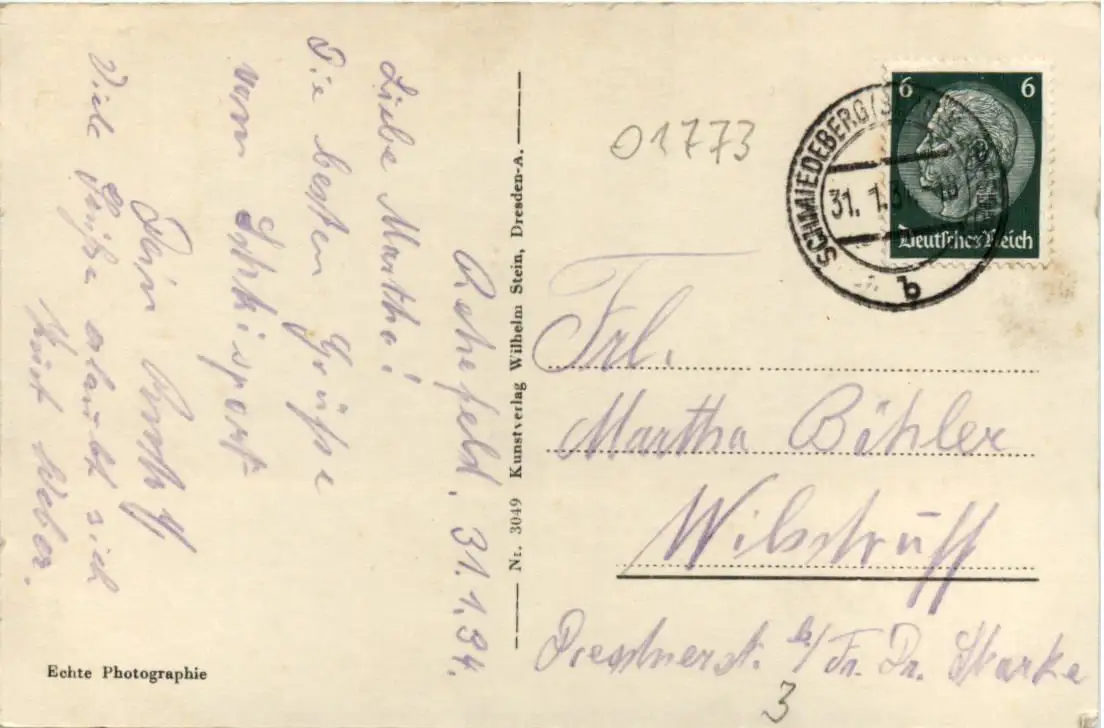 Rehefeld, 31.1.34.
Liebe Martha!
Die besten Grüße
vom Schisport
Dein
Viele Grüße erlaubt sich
Kurt Weber.
Echte Photographie
Nr. 3049 Kunstverlag Wilhelm Stein, Dresden-A.
01773
6 6
Deutsches Reich
SCHMIEDEBERG
31. 1. 34.
b
Frl.
Martha Böhler
Wilsdruff
Dresdnerst. b/ Fr. Dr. Starke
3